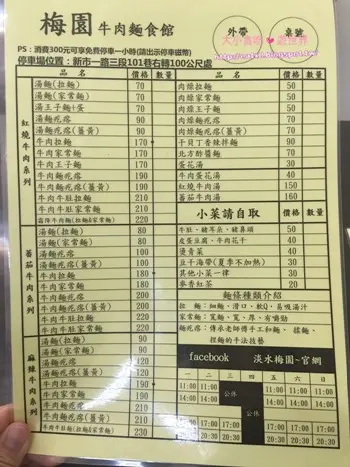 梅園 牛肉麵食館
外帶 桌號
PS：消費300元可享免費停車一小時(請出示停車磁幣)
停車場位置：新市一路三段101巷右轉100公尺處
品名 價格 數量
紅燒牛肉系列
湯麵(拉麵) 70
湯麵(家常麵) 70
湯王子麵+蛋 70
湯麵疙瘩 90
湯麵疙瘩(蕎黃) 90
牛肉拉麵 170
牛肉家常麵 170
牛肉王子麵 170
牛肉麵疙瘩 190
牛肉麵疙瘩(蕎黃) 190
牛肉牛肚拉麵 210
牛肉牛肚家常麵 210
220
番茄牛肉系列
湯麵(拉麵) 80
湯麵(家常麵) 80
湯麵疙瘩 100
湯麵疙瘩(蕎黃) 100
牛肉拉麵 180
牛肉家常麵 180
牛肉麵疙瘩 200
牛肉麵疙瘩(蕎黃) 200
牛肉牛肚拉麵 220
牛肉牛肚家常麵 220
麻辣牛肉系列
湯麵(拉麵) 90
湯麵(家常麵) 90
湯麵疙瘩 120
湯麵疙瘩(蕎黃) 120
牛肉拉麵 200
牛肉家常麵 200
牛肉麵疙瘩 210
牛肉麵疙瘩(蕎黃) 210
牛肉牛肚麵(拉麵&家常麵) 230
品名 價格 數量
肉絲拉麵 50
肉絲家常麵 50
肉絲麵疙瘩 70
肉絲麵疙瘩(蕎黃) 70
干貝丁香辣拌麵 90
北方酢醬麵 50
蛋花湯 30
牛肉蛋花湯 40
紅燒牛肉湯 150
番茄牛肉湯 160
小菜請自取 價格 數量
牛肚、豬耳朵、豬鼻頭 50
皮蛋豆腐、牛肉花干 50
燙青菜 40
豆干海帶(夏季不加熱) 30
其他小菜一律 30
麥香紅茶 20
麵條種類介紹
拉 麵：細麵，滑口、軟Q、易吸湯汁
家常麵：寬麵，寬、厚、有嚼勁
麵疙瘩：傳承老師傅手工和麵、揉麵、
捏麵的手法技藝
facebook 淡水梅園~官網
一 二 三 四 五 六 日
11:00 11:00 公休 11:00 11:00 11:00
14:00 14:00 14:00 14:00 14:00
17:00 17:00 公休 17:00 17:00 17:00 17:00
20:30 20:30 20:30 20:30 20:30 20:30